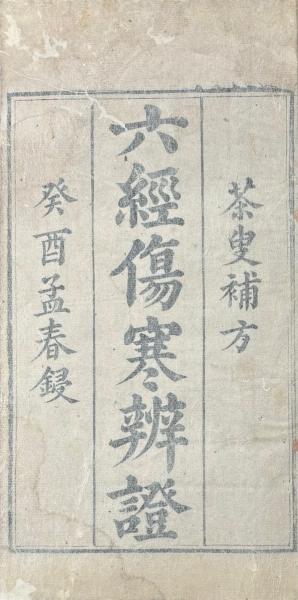 茶叟補方
六經傷寒辨證
癸酉孟春鋟